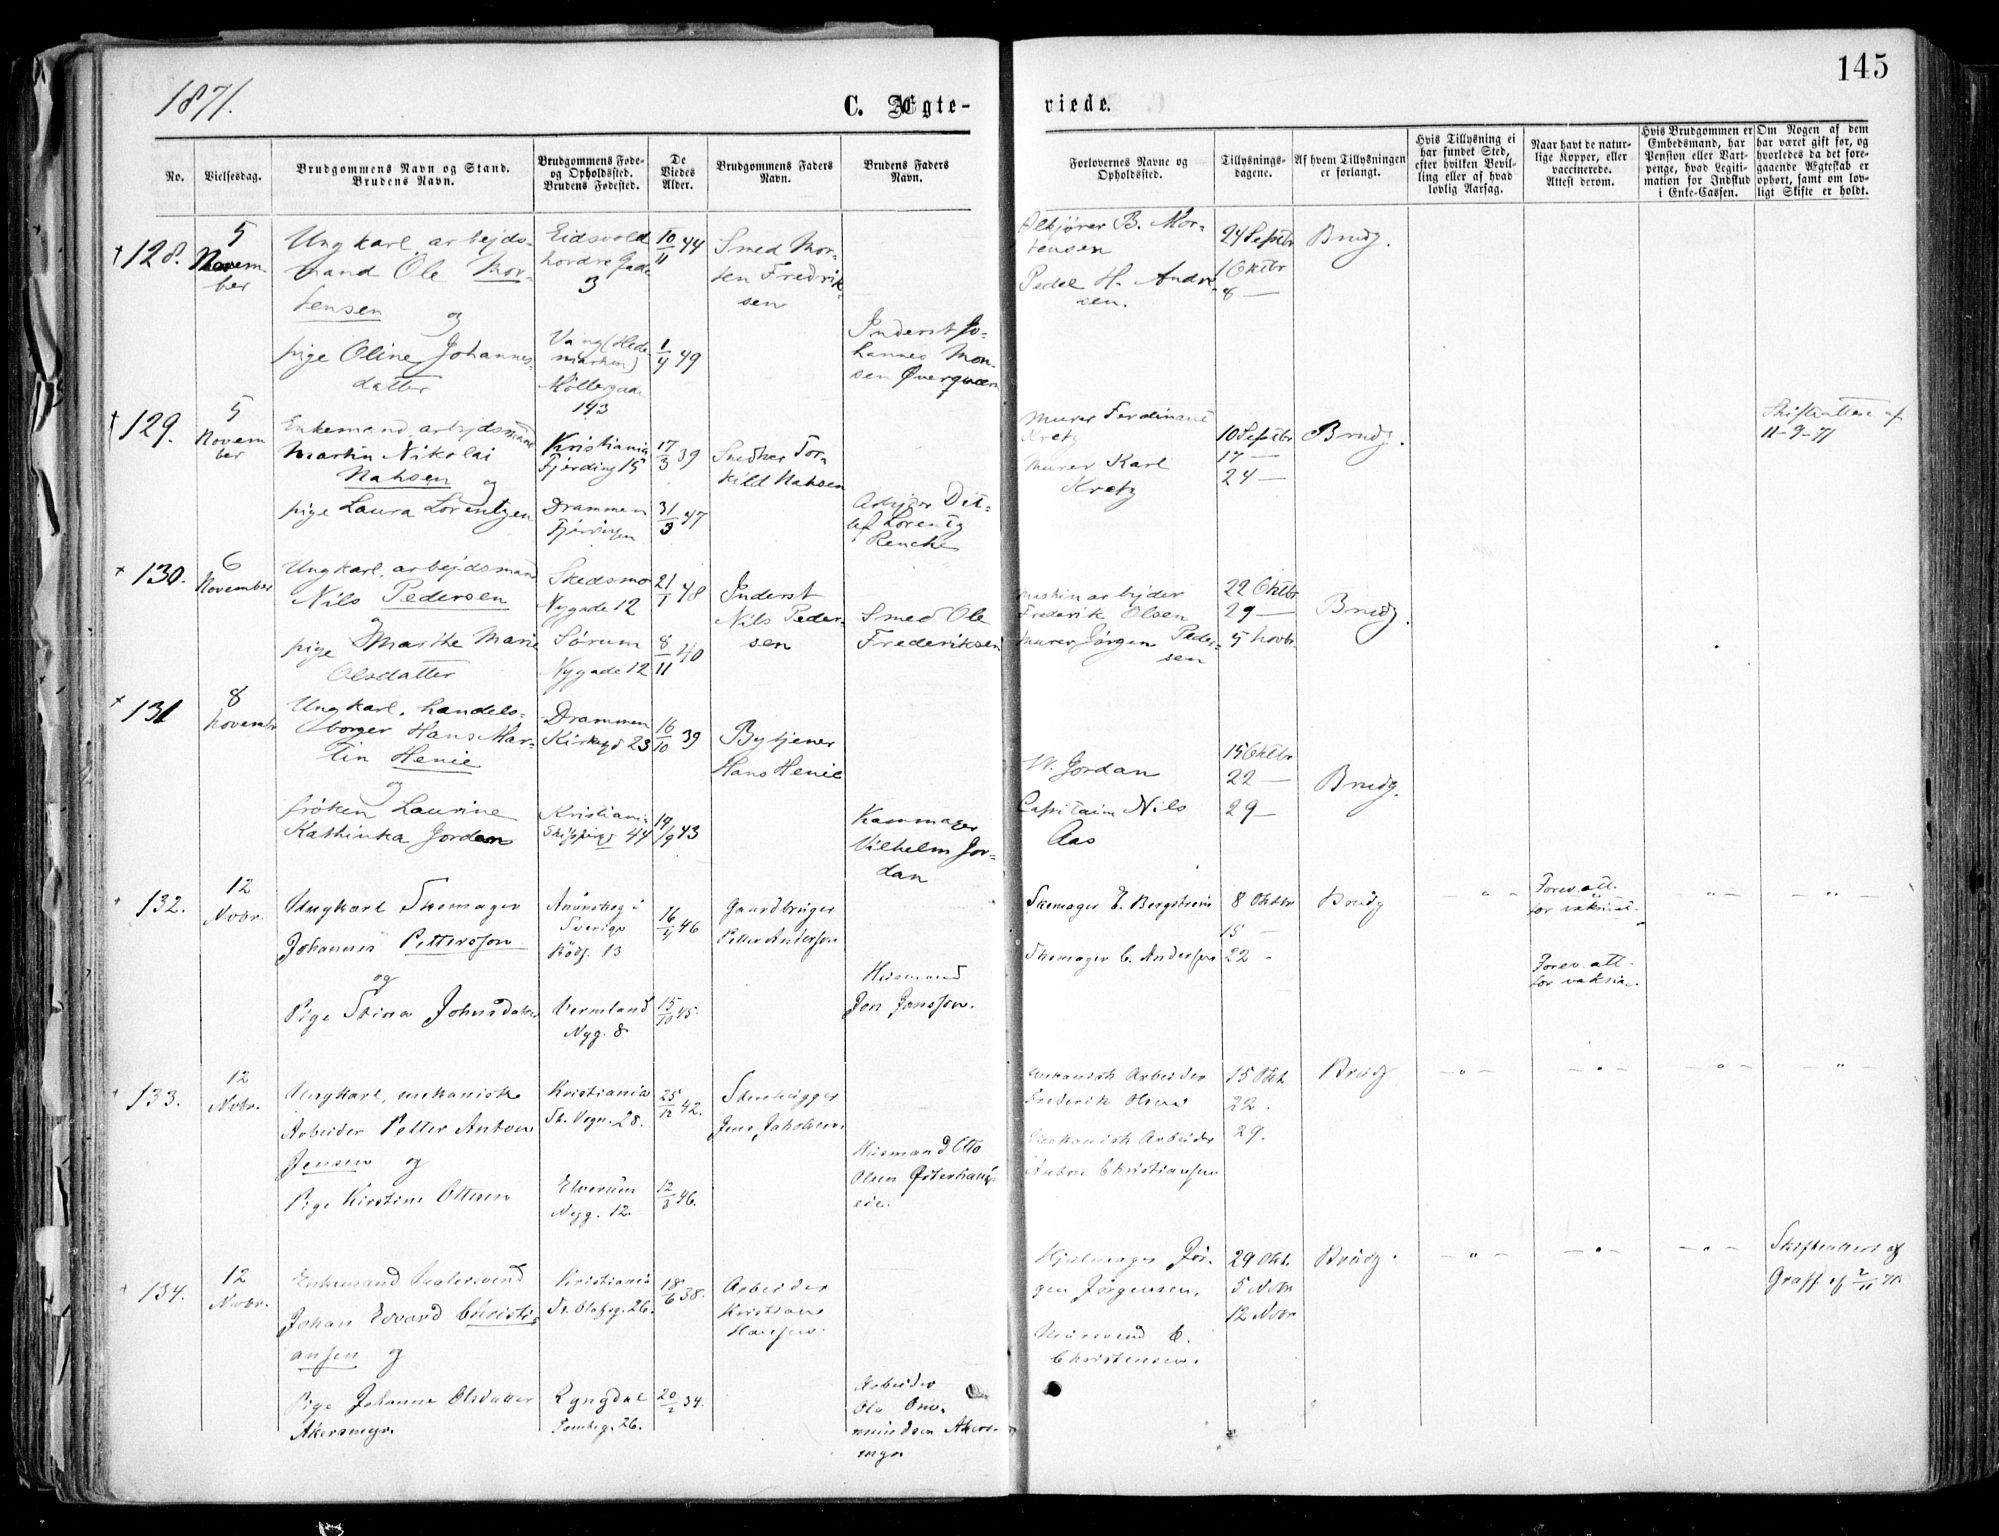 1871.
145
C. Ægte-
viede.
No.
Vielsesdag.
Brudgommens Navn og Stand.
Brudens Navn.
Brudgommens Føde-
og Opholdssted.
Brudens Fødested.
De
Viedes
Alder.
Brudgommens Faders
Navn.
Brudens Faders
Navn.
Forlovernes Navne og
Opholdssted.
Tillysnings-
dagene.
Af hvem Tillysningen
er forlangt.
Hvis Tillysning ei
har fundet Sted,
efter hvilken Bevil-
ling eller af hvad
lovlig Aarsag.
Naar havt de natur-
lige Kopper, eller
vaccinerede.
Attest derom.
Hvis Brudgommen er
Embedsmand, har
Pension eller Vart-
penge, hvad Legiti-
mation for Indskud
i Enke-Cassen.
Om Nogen af dem
har været gift før, og
hvorledes da det fore-
gaaende Ægteskab er
ophørt, samt om lov-
ligt Skifte er holdt.
128.
5
Novem-
ber
Ungkarl, arbejds-
mand Ole Mor-
tensen og
pige Oline Johannes-
datter
Eidsvold
nordre Gade
3
Vang (Hede-
marken)
Møllergade
143
10/11 44
1/4 49
Smed Mor-
ten Fredrik-
sen
Inderst Jo-
hannes Mon-
sen
B. Mor-
tensen
Pedel H. Andr-
sen.
24 Septbr
1 Oktbr
8 —
Brudg.
129.
5
Novem
ber
Enkemand, arbejdsmand
Martin Nikolai
Nahsen og
pige Laura Lorentzen
Kristiania
Fjerding 15
Drammen
Fjerdingen
17/3 39
31/3 47
Snedker Tor-
kild Nahsen
Arbejder Dit-
lef Lorentz
Murer Ferdinant
Kretz
Murer Karl
Kretz
10 Septbr
17 —
24 —
Brudg.
Skifteattest af
11-9-71
130.
6
November
Ungkarl, arbejdsmand
Nils Pedersen
og
pige Marthe Marie
Olsdatter
Skedsmo
Nygade 12
Sørum
Nygade 12
21/1 48
8/11 40
Inderst
Nils Peder-
sen
Smed Ole
Frederiksen
Maskinarbejder
Frederik Olsen
Murer Jørgen Peder-
sen
22 Oktbr
29 —
5 Novbr
Brudg.
131
8
Novembr
Ungkarl, handels-
borger Hans Mar-
tin Henie
og
frøken Laurine
Kathinka Jordan
Drammen
Kirkegd 23
Kristiania
Skipperg 44
16/10 39
19/9 43
Bytjener
Hans Henie
Kammager
Vilhelm Jor-
dan
W. Jordan
Capitaine Nils
Aas
15 Oktbr
22 —
29 —
Brudg.
132.
12
Novbr.
Ungkarl Skomager
Johannes Pettersson
og
Pige Stina Johnsdatter
Sverige
Rødf. 13
Vermland
Nyg. 8
16/4 46
15/10 45.
Gaardbruger
Petter Anderson
Husmand
Jon Jonsson.
Skomager E. Bergstrøm
Skomager C. Andersen
8 Oktbr
15 —
22 -
Brudg
Forev. att.
for vaksinat.
Forev. att.
for vaksin.
133.
12
Novbr.
Ungkarl, mekanisk
Arbeider Petter Anton
Jensen og
Pige Kirstine Ottesen
Kristiania
St. Vogn. 28.
Elverum
Nyg. 12.
25/12 42.
12/3 46.
Stenhugger
Jens Jakobsen
Husmand Otto
Olsen
eie.
Mekanisk Arbeider
Frederik Olsen
Mekanisk Arbeider
Anton Christiansen
15 Okt.
22.
29.
Brudg
134.
12
Novbr.
Enkemand
Johan Edvard Christi-
ansen og
Pige Johanne Olsdatter
Akersmyr.
Kristiania
St. Olafsg. 26.
Lyngdal
Tomteg. 26.
18/6 38.
20/2 34.
Arbeider
Kristian
Hansen.
Arbeider
Ole Om-
mundsen Akers-
myr
Hjulmager Jør-
gen Jørgensen.
Mursvend C.
Christensen.
29 Okt.
5 Novbr
12 Novbr
Brudg.
Skifteattest af
Graff. af 2/11 71